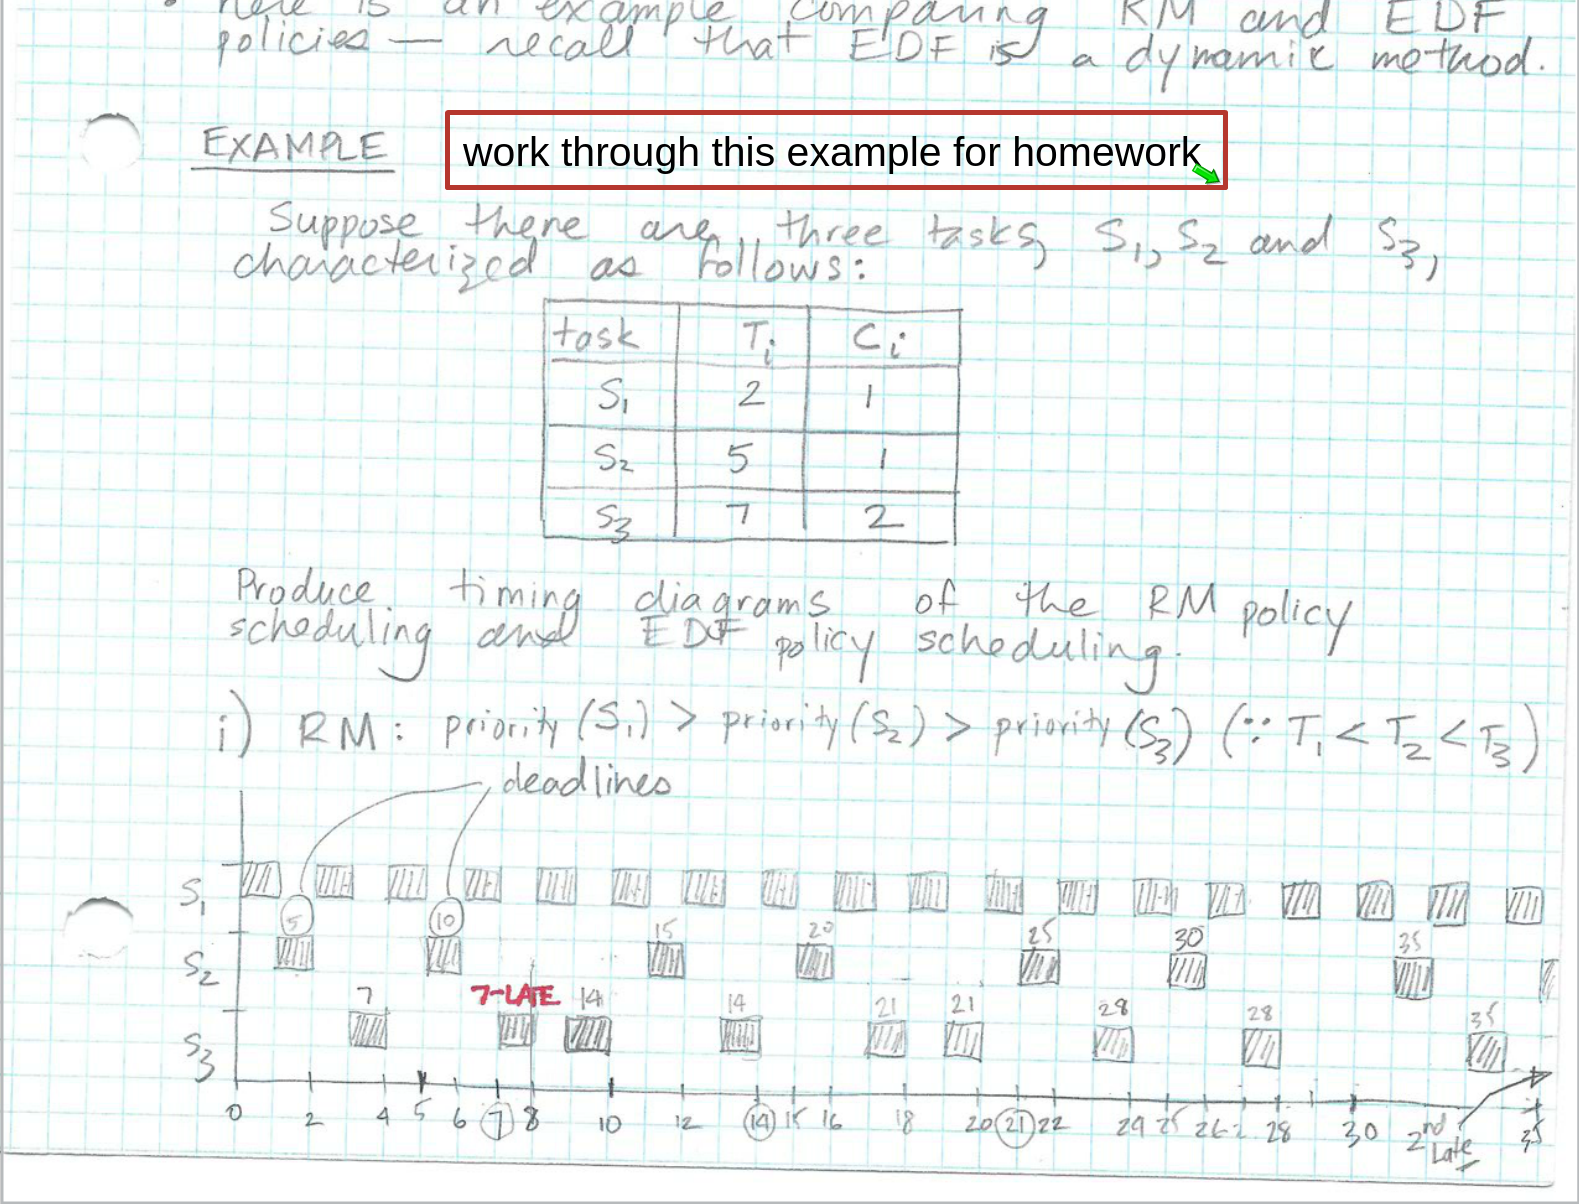 here is an example comparing RM and EDF
policies — recall that EDF is a dynamic method.
EXAMPLE
work through this example for homework
Suppose there are three tasks, S₁, S₂ and S₃,
characterized as follows:
task Tᵢ Cᵢ
S₁ 2 1
S₂ 5 1
S₃ 7 2
Produce timing diagrams of the RM policy
scheduling and EDF policy scheduling.
i) RM: priority (S₁) > priority (S₂) > priority (S₃) (∵ T₁ < T₂ < T₃)
deadlines
S₁
5 10 15 20 25 30 35
S₂
7 7-LATE 14 14 21 21 28 28 35
S₃
0 2 4 5 6 7 8 10 12 14 15 16 18 20 21 22 24 25 26 28 30 2nd Late 35